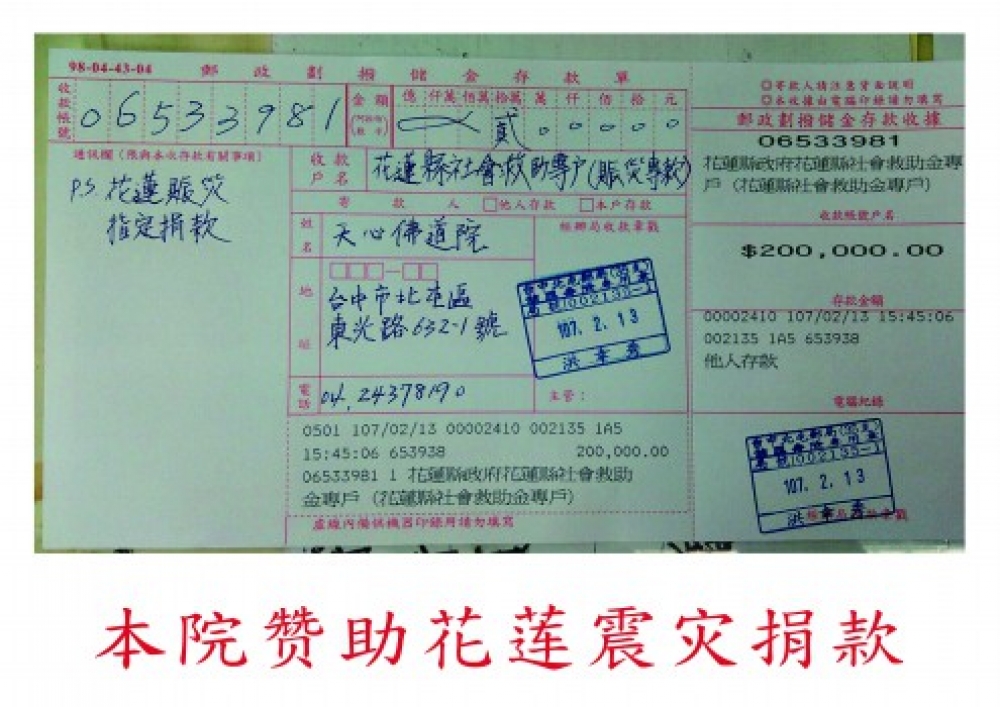 98-04-43-04 郵政劃撥儲金存款單
收款帳號 06533981
金額 億 仟萬 佰萬 拾萬 萬 仟 佰 拾 元
貳 0 0 0 0 0
通訊欄（限與本次存款有關事項）
P.S. 花蓮賑災
指定捐款
收款戶名 花蓮縣社會救助專戶(賑災專款)
寄款人 □他人存款 □本戶存款
姓名 天心佛道院
經辦局收款章戳
地址
台中市北屯區
東光路632-1號
107. 2. 13
電話 04.24378190
主管：
0501 107/02/13 00002410 002135 1A5
15:45:06 653938 200,000.00
06533981 1 花蓮縣政府花蓮縣社會救助
金專戶（花蓮縣社會救助金專戶）
虛線內備供機器印錄用請勿填寫
◎寄款人請注意背面說明
◎本收據由電腦印錄請勿填寫
郵政劃撥儲金存款收據
06533981
花蓮縣政府花蓮縣社會救助金專
戶（花蓮縣社會救助金專戶）
收款帳號戶名
$200,000.00
存款金額
00002410 107/02/13 15:45:06
002135 1A5 653938
他人存款
電腦紀錄
107. 2. 13
本院赞助花莲震灾捐款